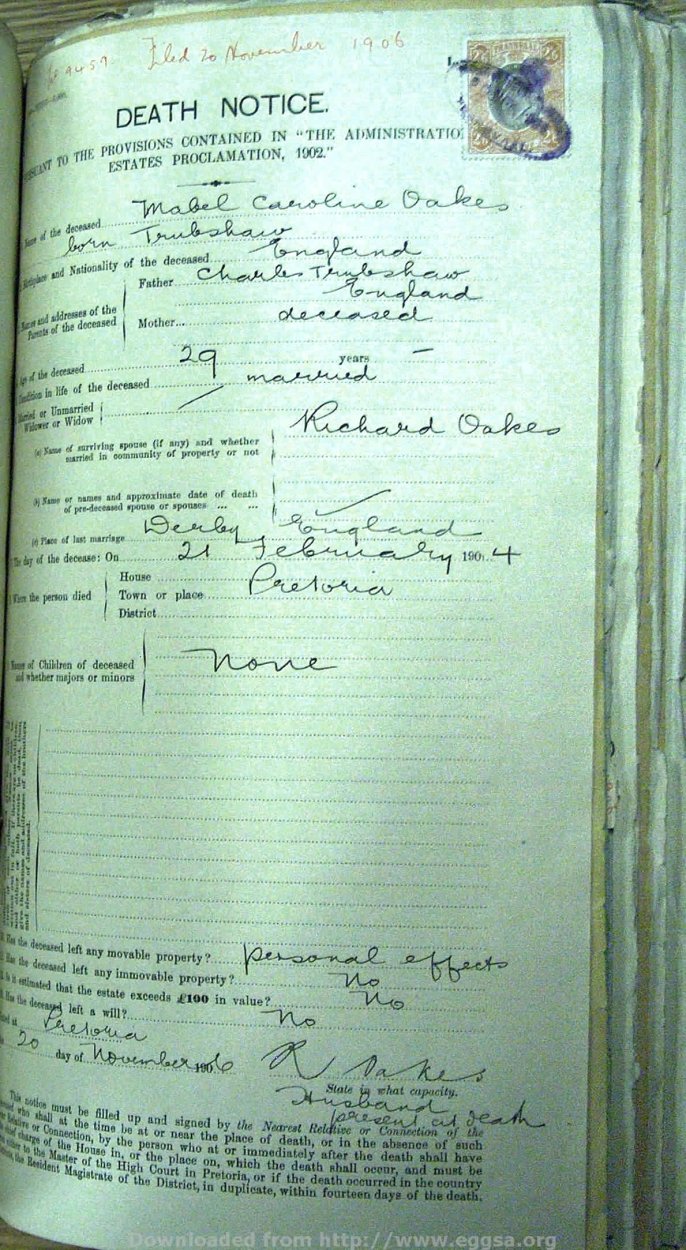 9457. Filed 20 November 1906
DEATH NOTICE.
TO THE PROVISIONS CONTAINED IN "THE ADMINISTRATIO
ESTATES PROCLAMATION, 1902."
of the deceased Mabel Caroline Oakes
born Trubshaw
and Nationality of the deceased England
Father Charles Trubshaw
England
and addresses of the
Parents of the deceased
Mother... deceased
of the deceased 29 years —
in life of the deceased married
or Unmarried
Widower or Widow
(a) Name of surviving spouse (if any) and whether
married in community of property or not
Richard Oakes
(b) Name or names and approximate date of death
of pre-deceased spouse or spouses ... ...
(c) Place of last marriage Derby, England
The day of the decease: On 21 February 190.4
Where the person died
House
Town or place Pretoria
District
Names of Children of deceased
and whether majors or minors
none
Has the deceased left any movable property? personal effects
Has the deceased left any immovable property? No
Is it estimated that the estate exceeds £100 in value? No
Has the deceased left a will? No
at Pretoria
20 day of November 1906 R Oakes
State in what capacity.
Husband
present at death
This notice must be filled up and signed by the Nearest Relative or Connection of the
who shall at the time be at or near the place of death, or in the absence of such
Relative or Connection, by the person who at or immediately after the death shall have
charge of the House in, or the place on, which the death shall occur, and must be
to the Master of the High Court in Pretoria, or if the death occurred in the country
the Resident Magistrate of the District, in duplicate, within fourteen days of the death.
Downloaded from http://www.eggsa.org